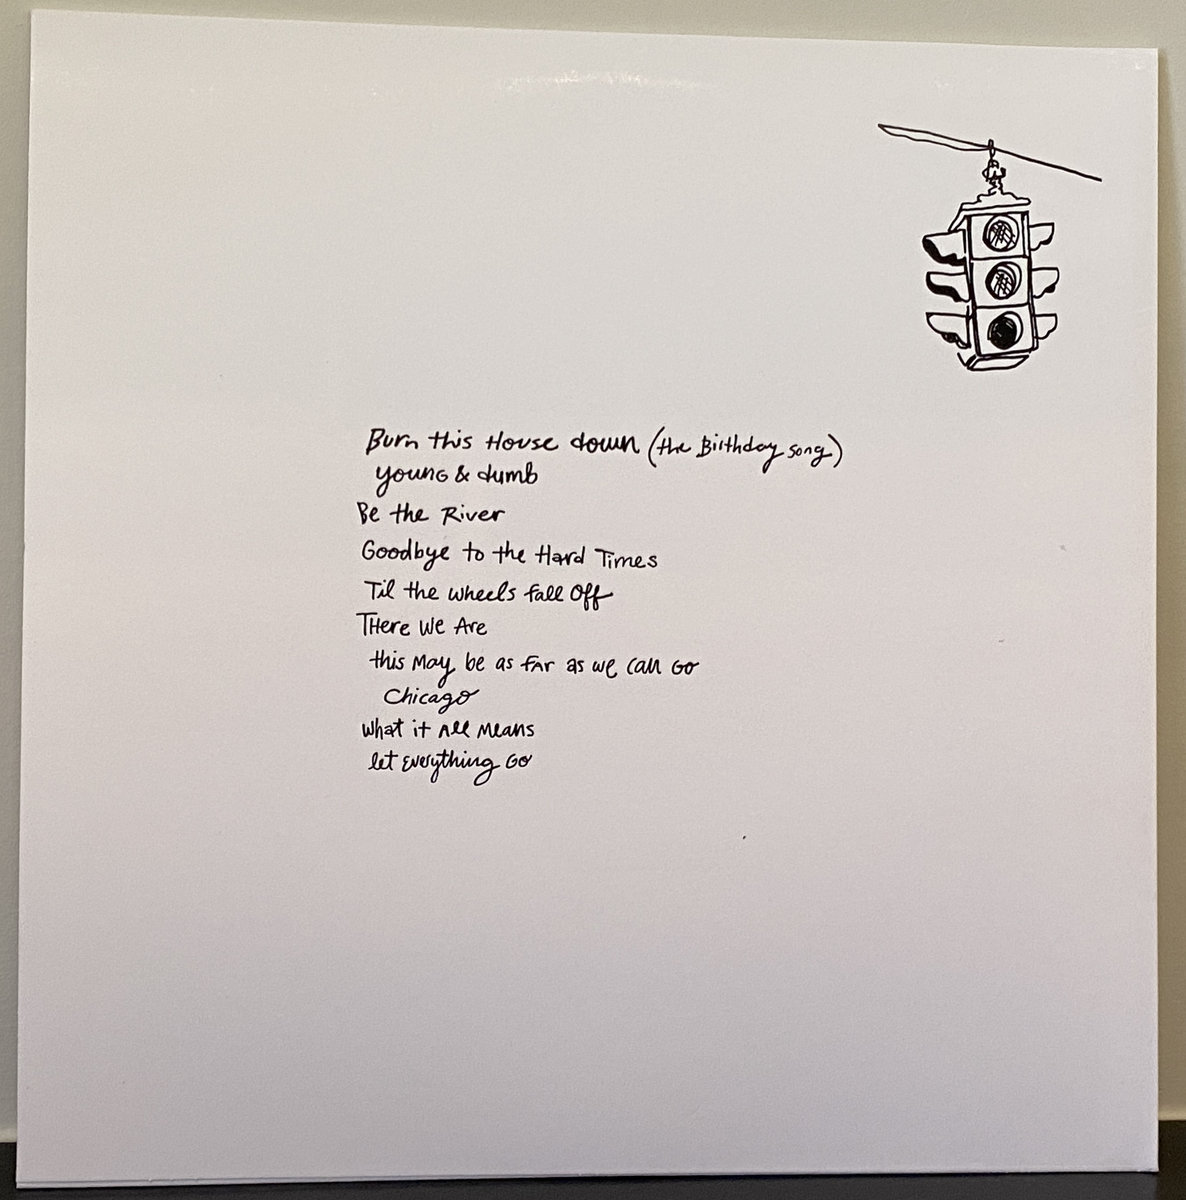 Burn this House down (the Birthday song)
young & dumb
Be the River
Goodbye to the Hard Times
Til the wheels fall Off
THere We Are
this May be as far as we can Go
Chicago
What it All Means
let Everything Go